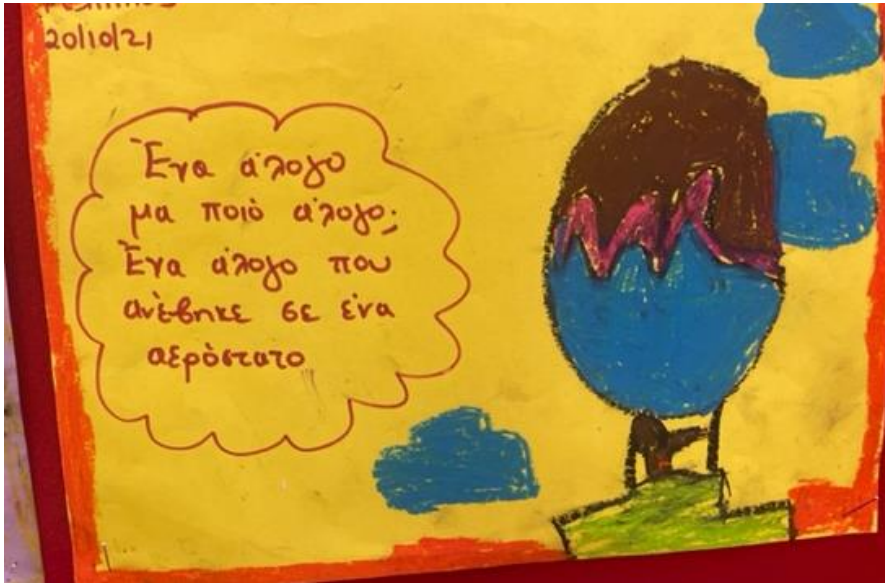 20/10/21
Ένα άλογο
μα ποιό άλογο;
Ένα άλογο που
ανέβηκε σε ένα
αερόστατο